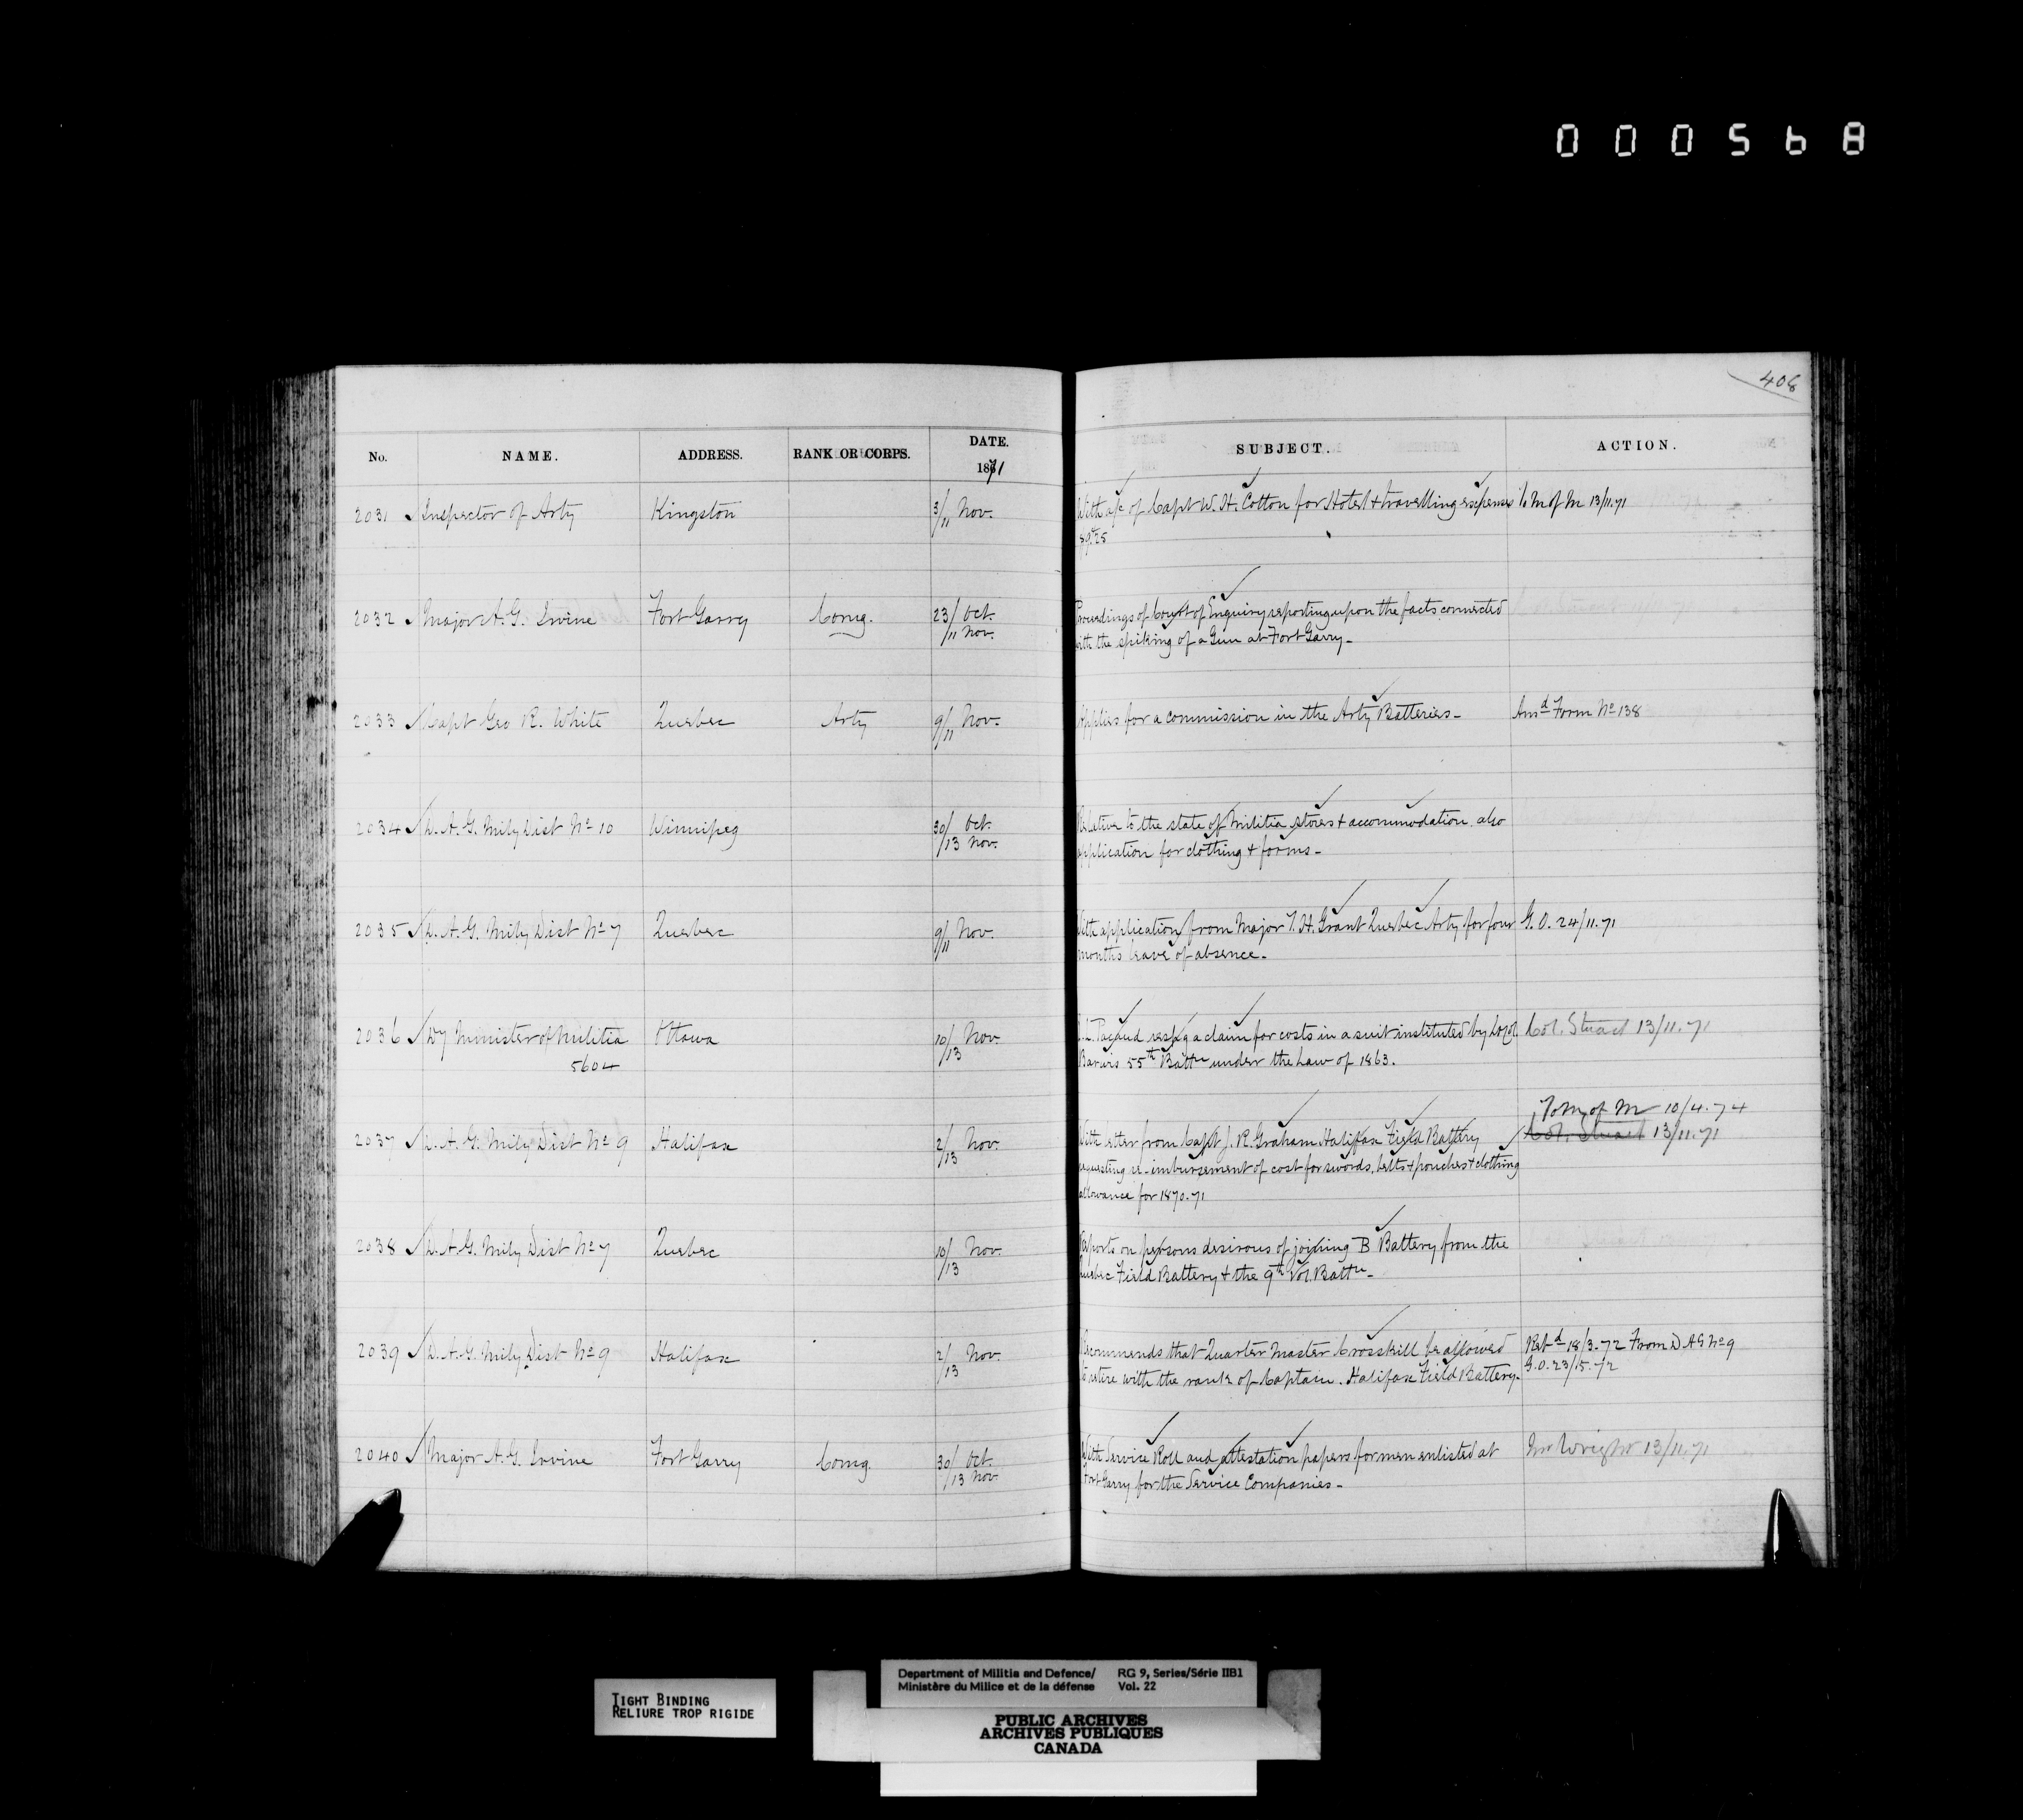 000568
408
No. NAME. ADDRESS. RANK OR CORPS. DATE. 1871 SUBJECT. ACTION.
2031 Inspector of Arty Kingston 3/11 Nov. With a/c of Capt W. H. Cotton for Hotel & travelling expenses To M of M 13/11.71
$9.25
2032 Major A. G. Irvine Fort Garry Comg. 23/ Oct. Proceedings of Court of Enquiry reporting upon the facts connected
/11 Nov. with the spiking of a Gun at Fort Garry_
2033 Capt Geo R. White Quebec Arty 9/11 Nov. Applies for a commission in the Arty Batteries_ Ansd Form No 138
2034 D. A. G. Mily Dist No 10 Winnipeg 30/ Oct. Relative to the state of Militia stores & accommodation also
/13 Nov. application for clothing & forms_
2035 D. A. G. Mily Dist No 7 Quebec 9/11 Nov. With application from Major T. H. Grant Quebec Arty for four G. O. 24/11.71
months leave of absence_
2036 Dy Minister of Militia Ottawa 10/13 Nov. Pacaud respg a claim for costs in a suit instituted by Lt Col. Col. Stuart 13/11.71
5604 Barwis 55th Battn under the Law of 1863.
To M of M 10/4.74
2037 D. A. G. Mily Dist No 9 Halifax 2/13 Nov. With letter from Capt J. R. Graham Halifax Field Battery Col. Stuart 13/11.71
requesting re-imbursement of cost for swords, belts & pouches & clothing
allowance for 1870.71
2038 D. A. G. Mily Dist No 7 Quebec 10/13 Nov. Reports on persons desirous of joining B Battery from the
Quebec Field Battery & the 9th Vol. Battn_
2039 D. A. G. Mily Dist No 9 Halifax 2/13 Nov. Recommends that Quarter Master Crosskill be allowed Retd 18/3.72 From D A G No 9
to retire with the rank of Captain. Halifax Field Battery. G. O. 23/5.72
2040 Major A. G. Irvine Fort Garry Comg. 30/ Oct. With Service Roll and attestation papers for men enlisted at Mr Wright 13/11.71
/13 Nov. Fort Garry for the Service Companies_
TIGHT BINDING
RELIURE TROP RIGIDE
Department of Militia and Defence/ RG 9, Series/Série IIB1
Ministère du Milice et de la défense Vol. 22
PUBLIC ARCHIVES
ARCHIVES PUBLIQUES
CANADA